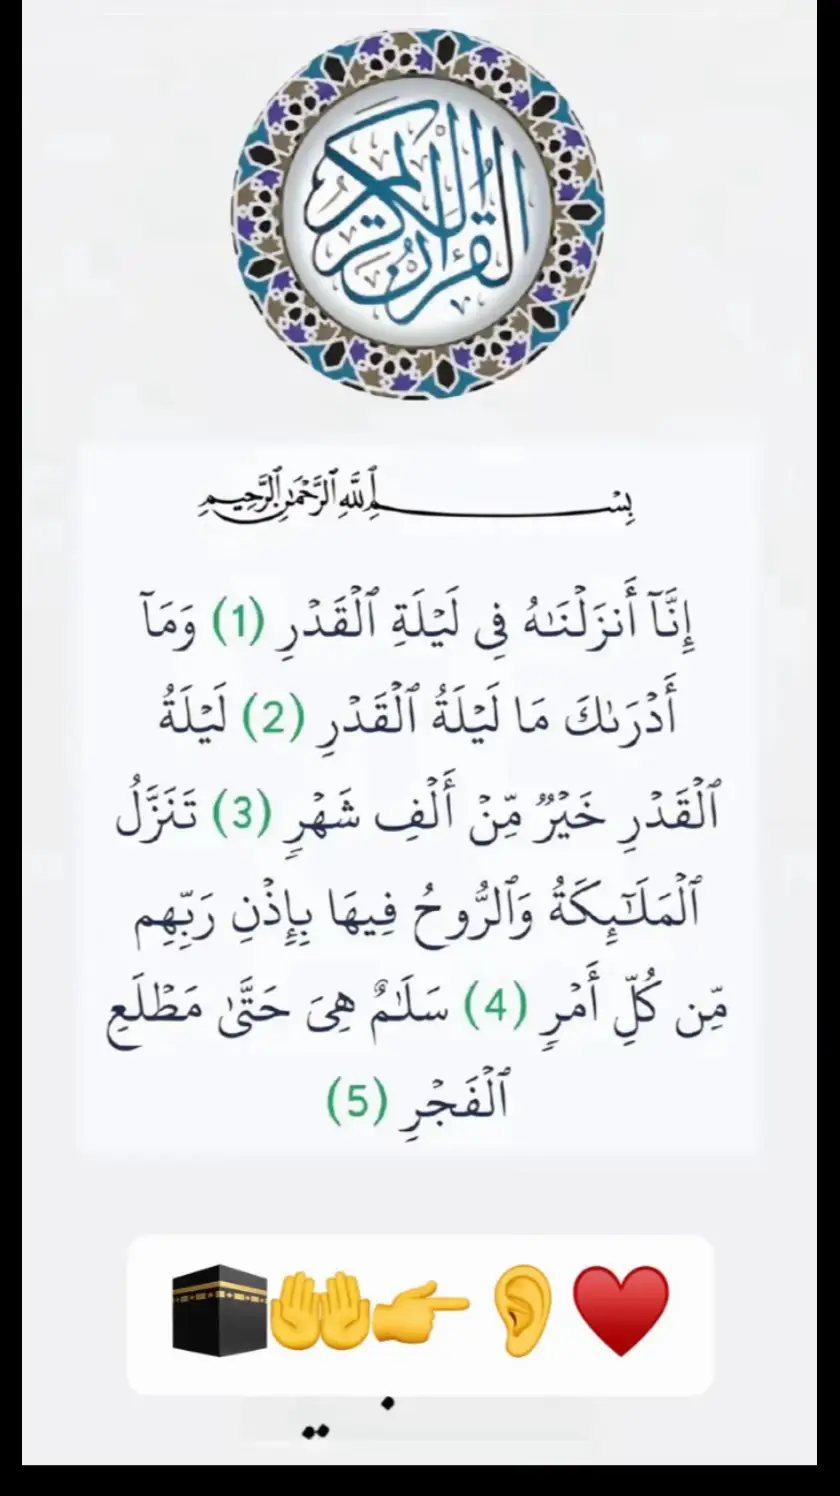 القرآن الكريم
بِسْمِ ٱللَّهِ ٱلرَّحْمَٰنِ ٱلرَّحِيمِ
إِنَّآ أَنزَلْنَٰهُ فِى لَيْلَةِ ٱلْقَدْرِ (1) وَمَآ
أَدْرَىٰكَ مَا لَيْلَةُ ٱلْقَدْرِ (2) لَيْلَةُ
ٱلْقَدْرِ خَيْرٌ مِّنْ أَلْفِ شَهْرٍ (3) تَنَزَّلُ
ٱلْمَلَٰٓئِكَةُ وَٱلرُّوحُ فِيهَا بِإِذْنِ رَبِّهِم
مِّن كُلِّ أَمْرٍ (4) سَلَٰمٌ هِىَ حَتَّىٰ مَطْلَعِ
ٱلْفَجْرِ (5)